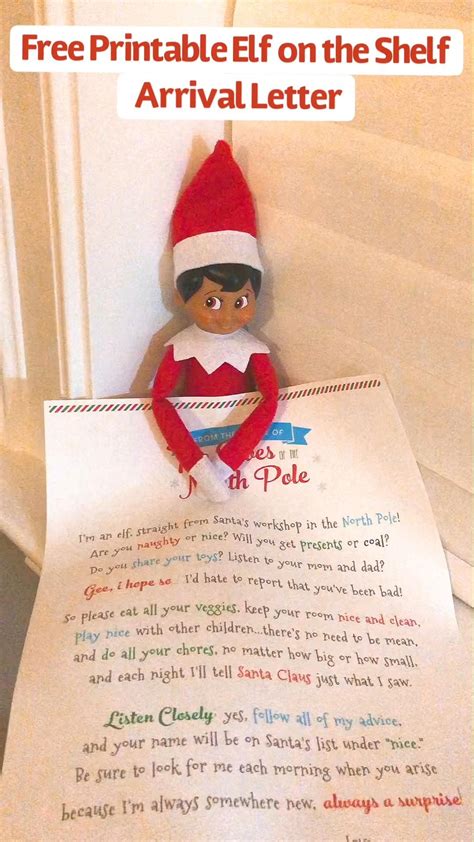 Free Printable Elf on the Shelf
Arrival Letter
FROM THE OF
OF THE
Pole
I'm an elf, straight from Santa's workshop in the North Pole!
Are you naughty or nice? Will you get presents or coal?
Do you share your toys? Listen to your mom and dad?
Gee, i hope so I'd hate to report that you've been bad!
So please eat all your veggies, keep your room nice and clean,
play nice with other children...there's no need to be mean,
and do all your chores, no matter how big or how small,
and each night I'll tell Santa Claus just what I saw.
Listen Closely yes, follow all of my advice,
and your name will be on Santa's list under "nice."
Be sure to look for me each morning when you arise
because I'm always somewhere new, always a surprise!